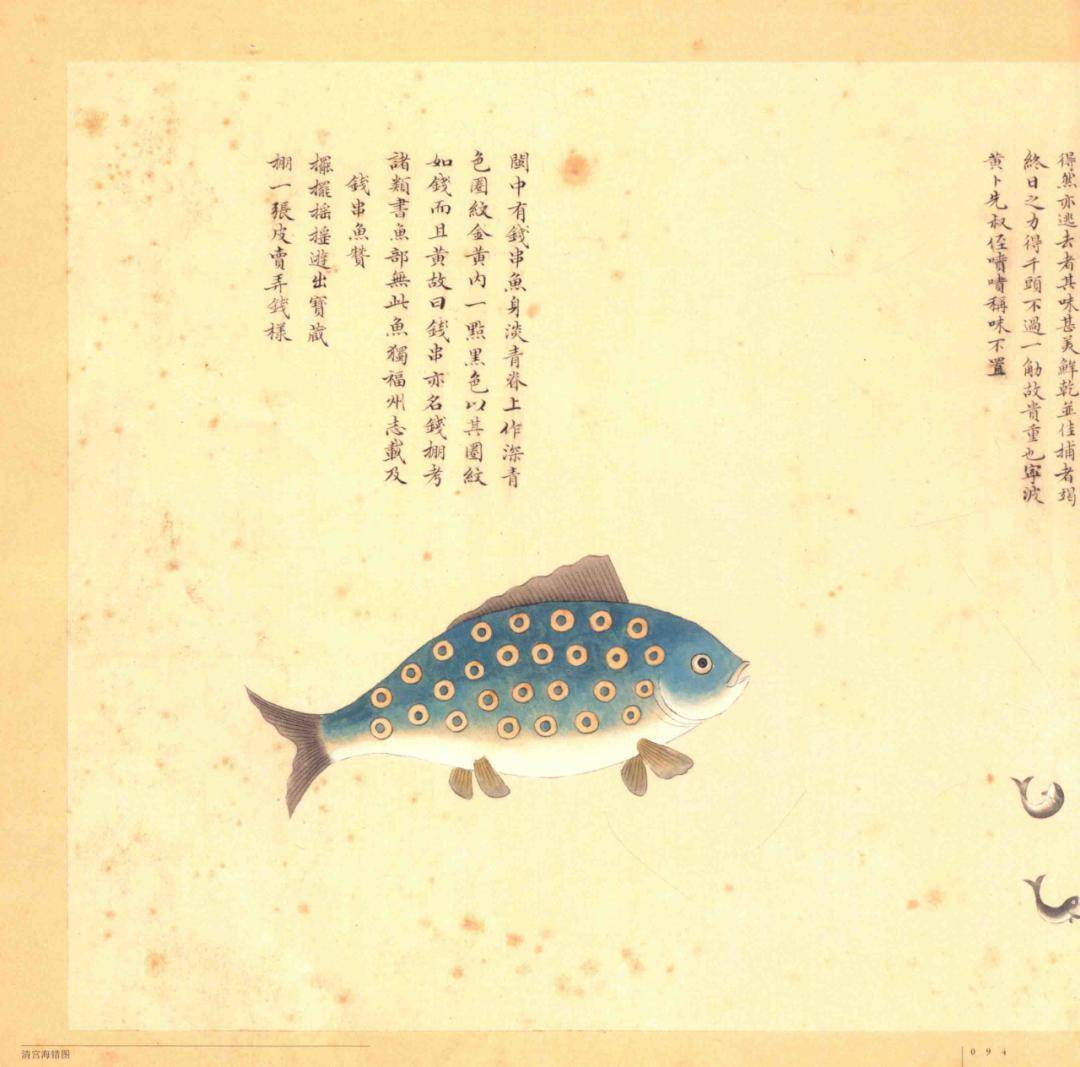 得然亦逃去者其味甚美鮮乾並佳捕者竭
終日之力得千頭不過一觔故貴重也寧波
黃卜先叔侄嘖嘖稱味不置
閩中有錢串魚身淡青脊上作深青
色圈紋金黃內一點黑色以其圈紋
如錢而且黃故曰錢串亦名錢棚考
諸類書魚部無此魚獨福州志載及
錢串魚贊
擺擺搖搖遊出寶藏
棚一張皮賣弄錢樣
清宫海错图
094